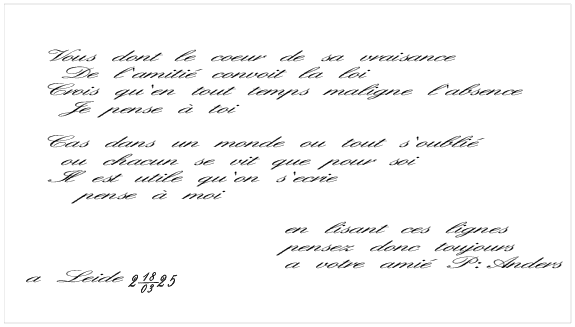 Vous dont le coeur de sa vraisance
De l'amitié convoit la loi
Crois qu'en tout temps maligne l'absence
Je pense à toi
Cas dans un monde ou tout s'oublié
ou chacun se vit que pour soi
Il est utile qu'on s'ecrie
pense à moi
en lisant ces lignes
pensez donc toujours
a votre amié P: Anders
a Leide 2 18/03 25